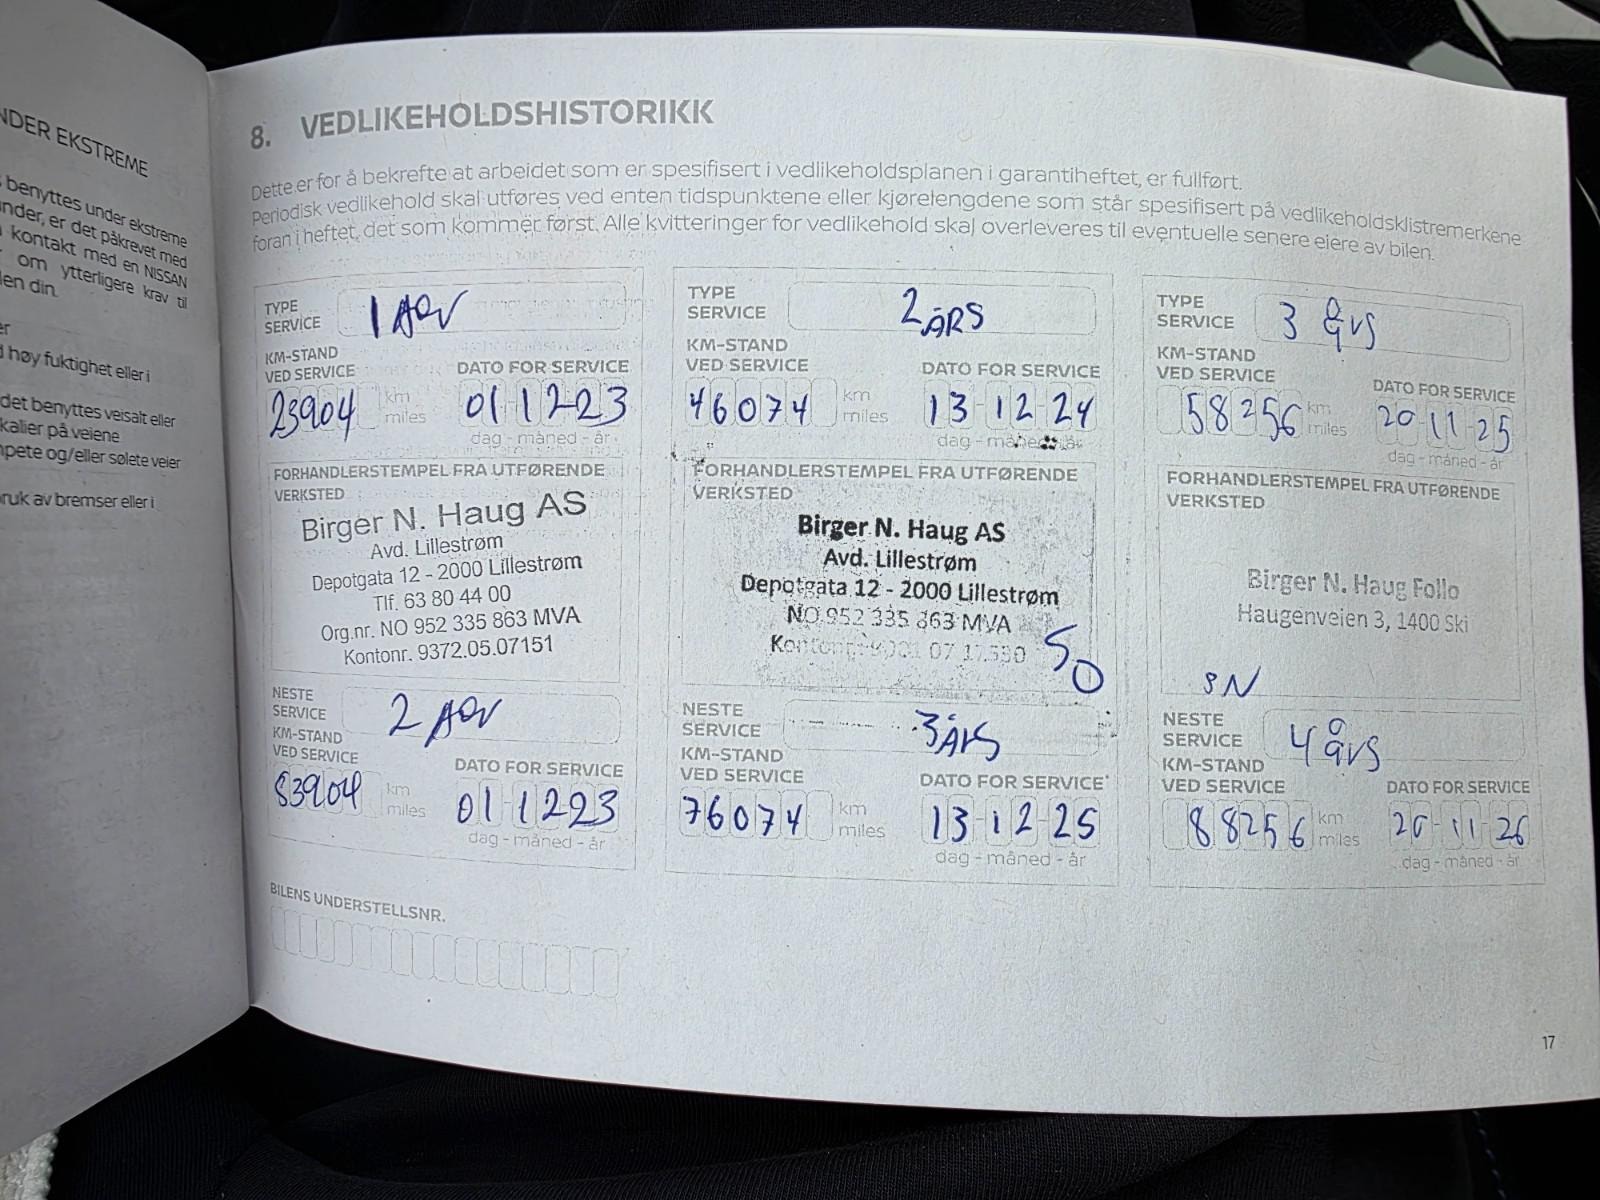 NDER EKSTREME
benyttes under ekstreme
nder, er det påkrevet med
kontakt med en NISSAN
om ytterligere krav til
len din.
er
høy fuktighet eller i
det benyttes veisalt eller
kalier på veiene
pete og/eller sølete veier
ruk av bremser eller i
8. VEDLIKEHOLDSHISTORIKK
Dette er for å bekrefte at arbeidet som er spesifisert i vedlikeholdsplanen i garantiheftet, er fullført.
Periodisk vedlikehold skal utføres ved enten tidspunktene eller kjørelengdene som står spesifisert på vedlikeholdsklistremerkene
foran i heftet, det som kommer først. Alle kvitteringer for vedlikehold skal overleveres til eventuelle senere eiere av bilen.
TYPE
SERVICE
1
KM-STAND
VED SERVICE
DATO FOR SERVICE
23904 km
miles
01 12 23
dag - måned - år
FORHANDLERSTEMPEL FRA UTFØRENDE
VERKSTED
Birger N. Haug AS
Avd. Lillestrøm
Depotgata 12 - 2000 Lillestrøm
Tlf. 63 80 44 00
Org.nr. NO 952 335 863 MVA
Kontonr. 9372.05.07151
NESTE
SERVICE
2
KM-STAND
VED SERVICE
DATO FOR SERVICE
83904 km
miles
01 12 23
dag - måned - år
BILENS UNDERSTELLSNR.
TYPE
SERVICE
2 ÅRS
KM-STAND
VED SERVICE
DATO FOR SERVICE
46074 km
miles
13 12 24
dag - måned - år
FORHANDLERSTEMPEL FRA UTFØRENDE
VERKSTED
Birger N. Haug AS
Avd. Lillestrøm
Depotgata 12 - 2000 Lillestrøm
NO 952 335 863 MVA
SO
NESTE
SERVICE
3 ÅRS
KM-STAND
VED SERVICE
DATO FOR SERVICE
76074 km
miles
13 12 25
dag - måned - år
TYPE
SERVICE
3 års
KM-STAND
VED SERVICE
DATO FOR SERVICE
58256 km
miles
20 11 25
dag - måned - år
FORHANDLERSTEMPEL FRA UTFØRENDE
VERKSTED
Birger N. Haug Follo
Haugenveien 3, 1400 Ski
SN
NESTE
SERVICE
4 års
KM-STAND
VED SERVICE
DATO FOR SERVICE
88256 km
miles
20 11 26
dag - måned - år
17